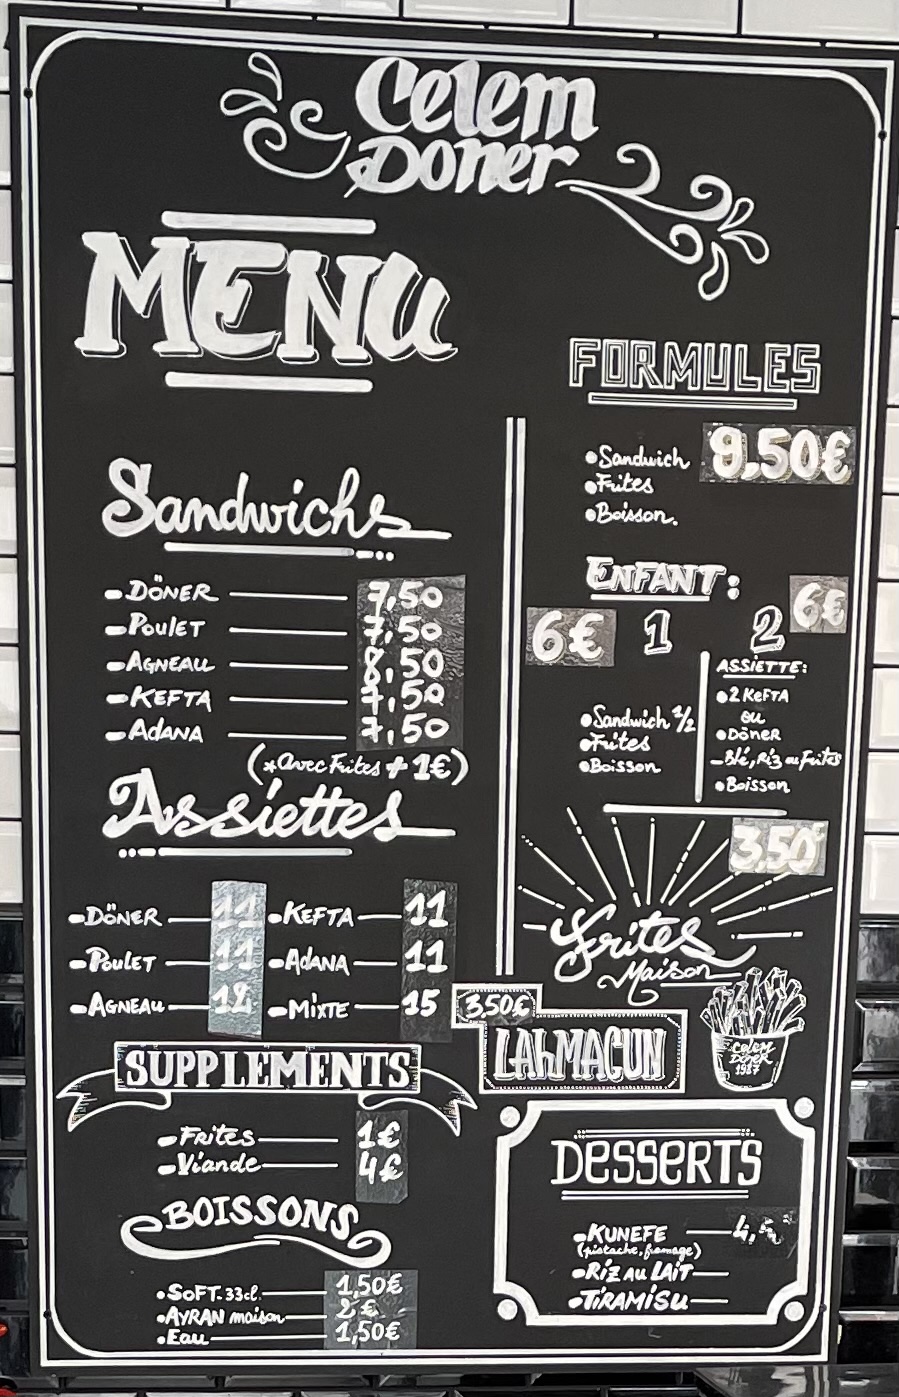 Celem
Doner
MENU
Sandwichs
DÖNER 7,50
POULET 7,50
AGNEAU 8,50
KEFTA 7,50
ADANA 7,50
(*avec Frites + 1€)
Assiettes
DÖNER 11
POULET 11
AGNEAU 12
KEFTA 11
ADANA 11
MiXTE 15
SUPPLEMENTS
FRiTES 1€
Viande 4€
BOISSONS
SOFT. 33cl. 1,50€
AYRAN maison 2€
Eau 1,50€
FORMULES
Sandwich 9,50€
Frites
Boisson.
ENFANT :
6€ 1
Sandwich 1/2
Frites
Boisson
2 6€
ASSIETTE:
2 KeFTA
ou
DÖNER
Blé, Riz ou Frites
Boisson
3.50€
Frites
Maison
celem
Döner
1987
3,50€
LAhMACUN
DeSSeRTS
KUNEFE 4,
(pistache, fromage)
RiZ AU LAiT
TiRAMiSU